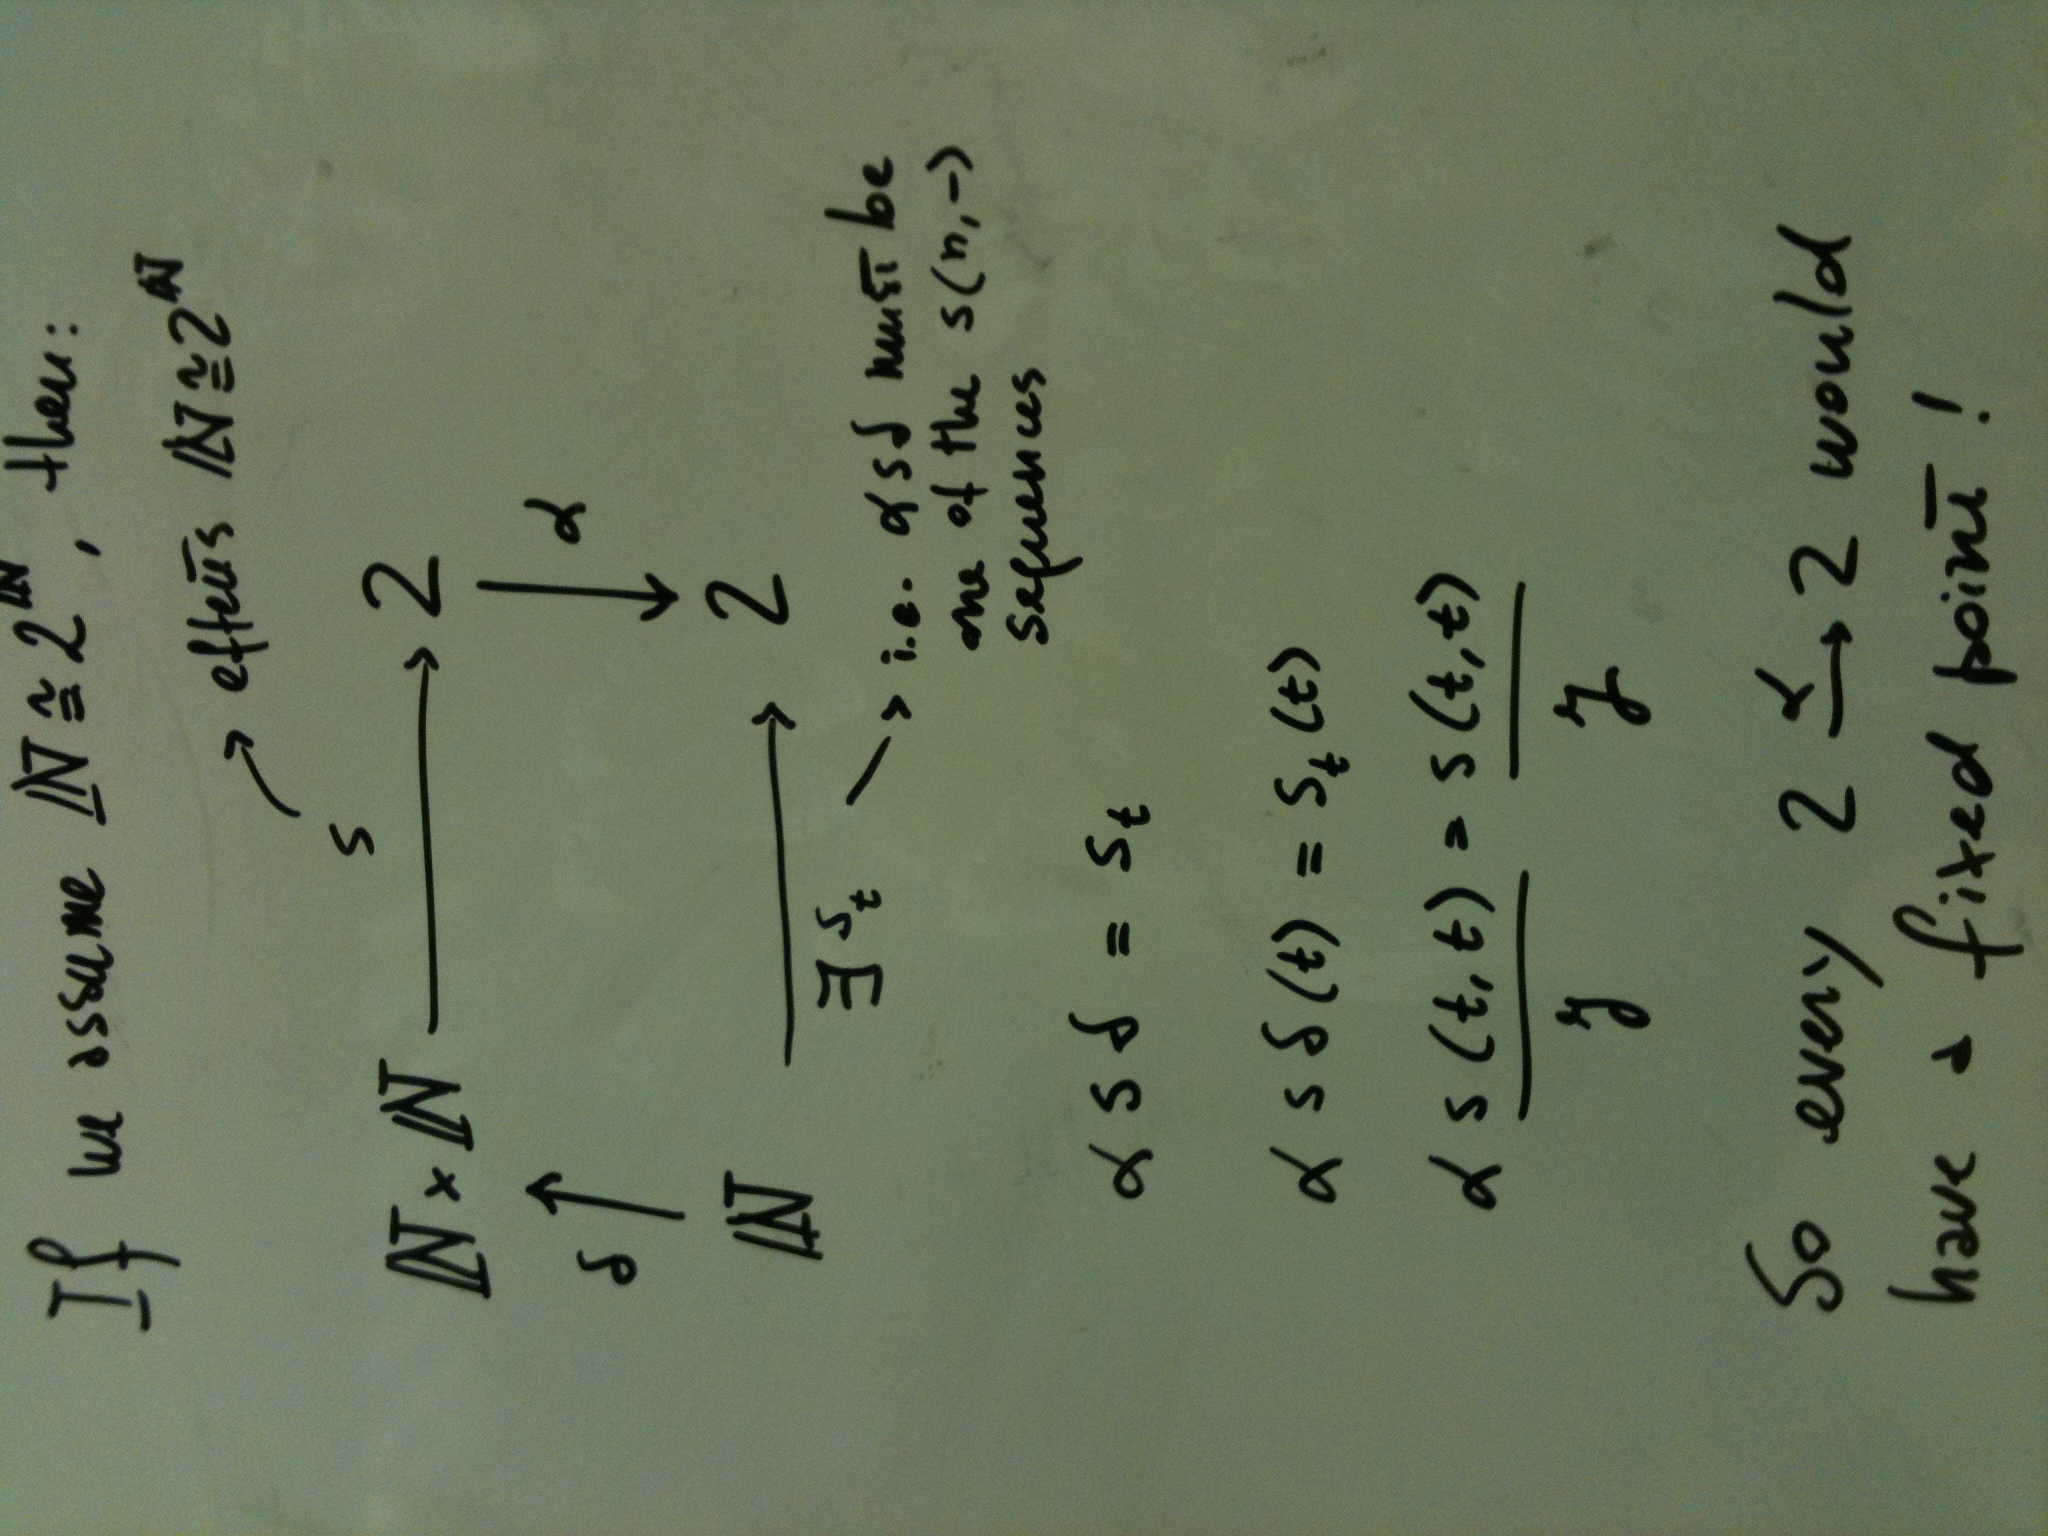 If we assume ℕ ≅ 2^ℕ, then:
effects ℕ ≅ 2^ℕ
s
ℕ × ℕ → 2
δ ↑ ↓ α
ℕ → 2
∃ s_t
i.e. α s δ must be
one of the s(n,-)
sequences
α s δ = s_t
α s δ(t) = s_t(t)
α s(t,t) = s(t,t)
y y
So every 2 →^α 2 would
have a fixed point!